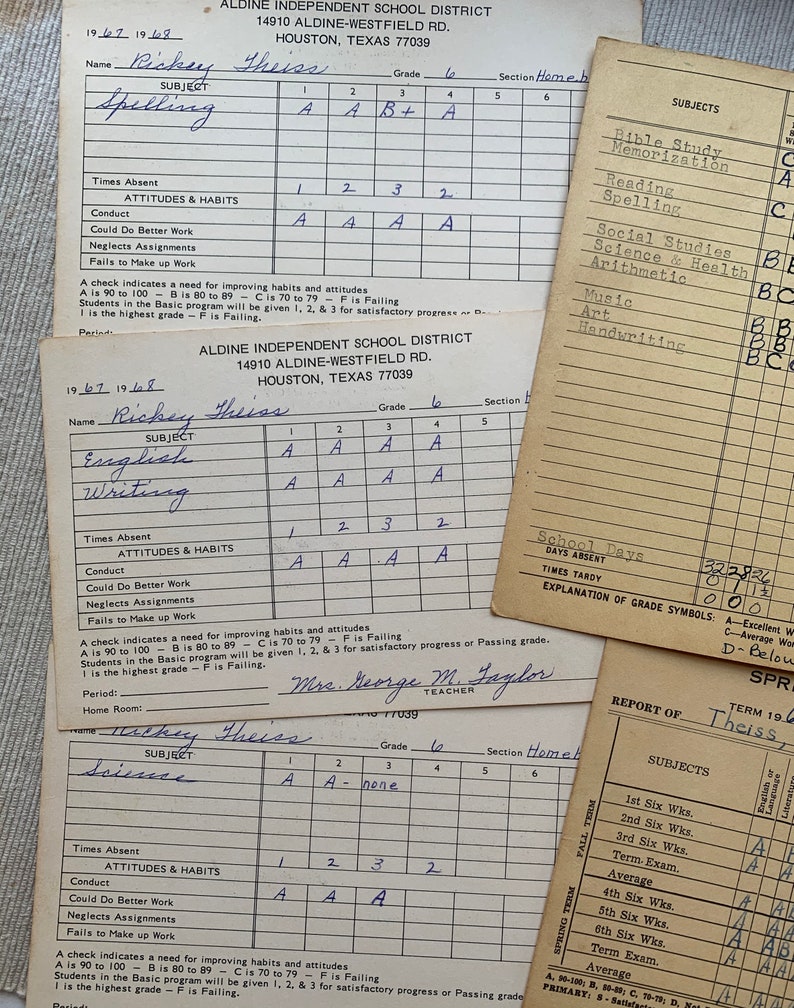 ALDINE INDEPENDENT SCHOOL DISTRICT
14910 ALDINE-WESTFIELD RD.
HOUSTON, TEXAS 77039
19 67 19 68
Name Rickey Theiss Grade 6 Section Home
SUBJECT 1 2 3 4 5 6
Spelling A A B+ A
Times Absent 1 2 3 2
ATTITUDES & HABITS
Conduct A A A A
Could Do Better Work
Neglects Assignments
Fails to Make up Work
A check indicates a need for improving habits and attitudes
A is 90 to 100 — B is 80 to 89 — C is 70 to 79 — F is Failing
Students in the Basic program will be given 1, 2, & 3 for satisfactory progress or
1 is the highest grade — F is Failing.
Period:
ALDINE INDEPENDENT SCHOOL DISTRICT
14910 ALDINE-WESTFIELD RD.
HOUSTON, TEXAS 77039
19 67 19 68
Name Rickey Theiss Grade 6 Section
SUBJECT 1 2 3 4 5
English A A A A
Writing A A A A
Times Absent 1 2 3 2
ATTITUDES & HABITS
Conduct A A A A
Could Do Better Work
Neglects Assignments
Fails to Make up Work
A check indicates a need for improving habits and attitudes
A is 90 to 100 — B is 80 to 89 — C is 70 to 79 — F is Failing
Students in the Basic program will be given 1, 2, & 3 for satisfactory progress or Passing grade.
1 is the highest grade — F is Failing.
Period: Mrs. George M. Taylor
TEACHER
Home Room:
77039
Name Rickey Theiss Grade 6 Section Home
SUBJECT 1 2 3 4 5 6
Science A A- none
Times Absent 1 2 3 2
ATTITUDES & HABITS
Conduct A A A
Could Do Better Work
Neglects Assignments
Fails to Make up Work
A check indicates a need for improving habits and attitudes
A is 90 to 100 — B is 80 to 89 — C is 70 to 79 — F is Failing
Students in the Basic program will be given 1, 2, & 3 for satisfactory progress or Passing grade
1 is the highest grade — F is Failing.
Period:
SUBJECTS
Bible Study C
Memorization A
Reading
Spelling C
Social Studies
Science & Health B
Arithmetic
B C
Music
Art B B
Handwriting B B
B C
School Days 32 28 26
DAYS ABSENT 0 1 1½
TIMES TARDY 0 0 0
EXPLANATION OF GRADE SYMBOLS: A—Excellent
C—Average
D-Below
SPR
REPORT OF Theiss,
TERM 19
SUBJECTS
English or Language
Literature
FALL TERM
1st Six Wks.
2nd Six Wks.
3rd Six Wks. A
Term Exam. A
Average
SPRING TERM
4th Six Wks. A
5th Six Wks. A
6th Six Wks. A
Term Exam. A
Average
A, 90-100; B, 80-89; C, 70-79; D,
PRIMARY: S - Satisfac